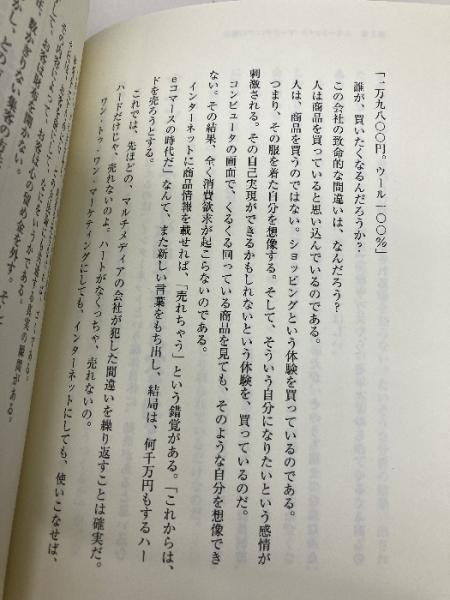 「二万九八〇〇円。ウール一〇〇%」
誰が、買いたくなるんだろうか？
この会社の致命的な間違いは、なんだろう？
人は商品を買っていると思い込んでいるのである。
人は、商品を買うのではない。ショッピングという体験を買っているのである。
つまり、その服を着た自分を想像する。そして、そういう自分になりたいという感情が
刺激される。その自己実現ができるかもしれないという体験を、買っているのだ。
コンピュータの画面で、くるくる回っている商品を見ても、そのような自分を想像でき
ない。その結果、全く消費欲求が起こらないのである。
インターネットに商品情報を載せれば、「売れちゃう」という錯覚がある。「これからは、
eコマースの時代だ」なんて、また新しい言葉をもち出し、結局は、何千万円もするハー
ドを売ろうとする。
これでは、先ほどの、マルチメディアの会社が犯した間違いを繰り返すことは確実だ。
ハードだけじゃ、売れないのよ。ハートがなくっちゃ、売れないの。
ワン・トゥ・ワン・マーケティングにしても、インターネットにしても、使いこなせば、
数かぎりない集客の方法
お客は財布を開かない。
お客は心の留め金を外す。そして